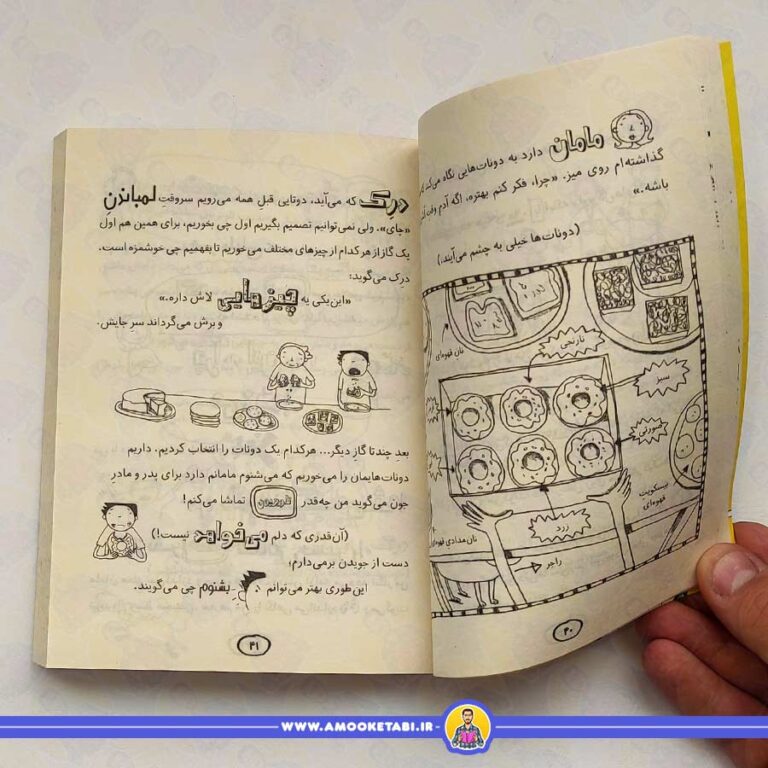 مامان دارد به دونات‌هایی نگاه می‌کند که
گذاشته‌ام روی میز. «چرا، فکر کنم بهتره. اگه آدم وقت
باشه.»
(دونات‌ها خیلی به چشم می‌آیند.)
نان قهوه‌ای
نارنجی
سبز
صورتی
بیسکویت
قهوه‌ای
زرد
نان مدادی قهوه‌ای
راجر
۴۰
درک که می‌آید، دوتایی قبلِ همه می‌رویم سروقتِ لمباندنِ
«چای». ولی نمی‌توانیم تصمیم بگیریم اول چی بخوریم، برای همین هم اول
یک گاز از هرکدام از چیزهای مختلف می‌خوریم تا بفهمیم چی خوشمزه است.
درک می‌گوید:
«این‌یکی یه چیزهایی لاش داره.»
و برش می‌گرداند سر جایش.
بعد چندتا گازِ دیگر... هرکدام یک دونات را انتخاب کردیم. داریم
دونات‌هایمان را می‌خوریم که می‌شنوم مامانم دارد برای پدر و مادر
جون می‌گوید من چه‌قدر تلویزیون تماشا می‌کنم!
(آن‌قدری که دلم می‌خواهد نیست!)
دست از جویدن برمی‌دارم؛
این‌طوری بهتر می‌توانم بشنوم چی می‌گویند.
۴۱
WWW.AMOOKETABI.IR